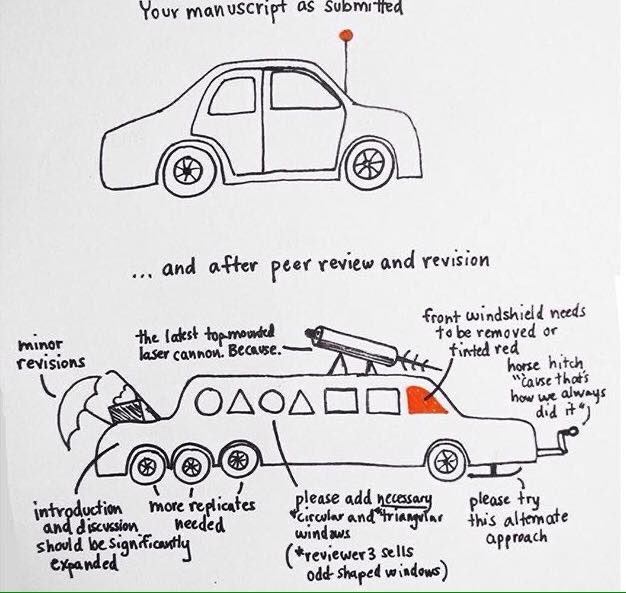 Your manuscript as submitted
... and after peer review and revision
minor
revisions
the latest top mounted
laser cannon. Because.
front windshield needs
to be removed or
tinted red
horse hitch
"cause that's
how we always
did it"
introduction
and discussion
should be significantly
expanded
more replicates
needed
please add necessary
*circular and *triangular
windows
(*reviewer 3 sells
odd shaped windows)
please try
this alternate
approach